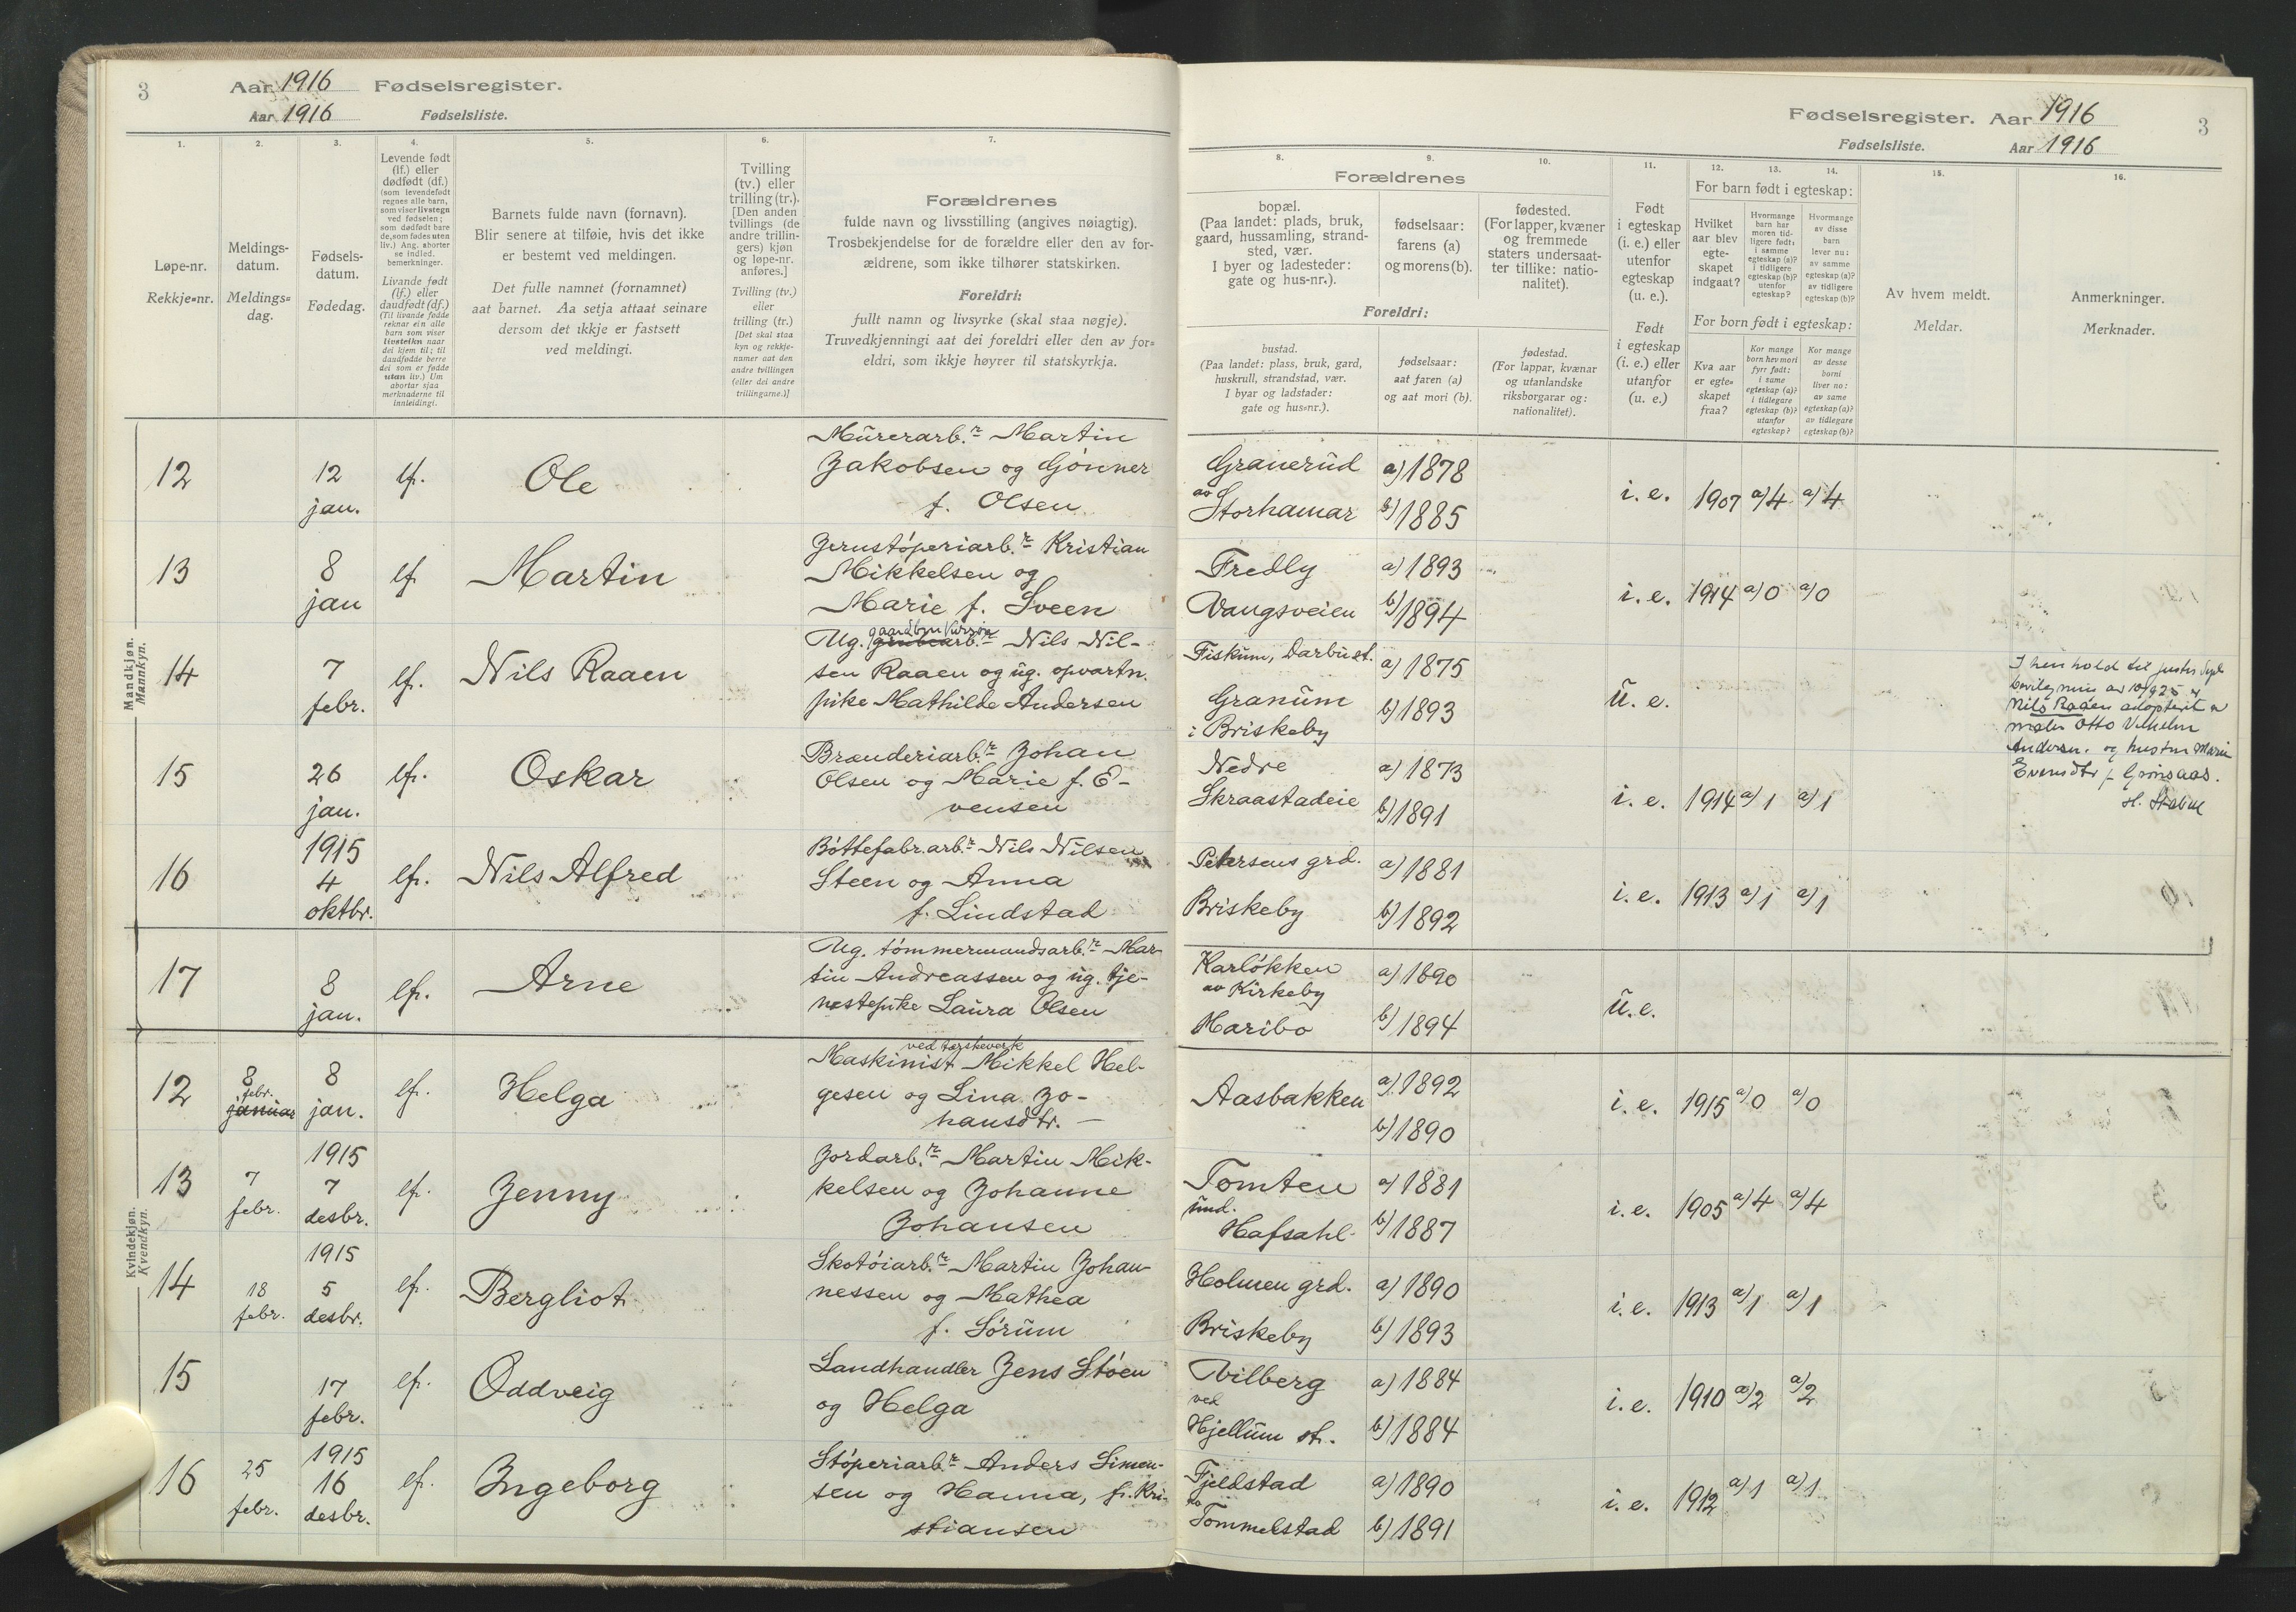 3
Aar 1916 Fødselsregister.
Aar 1916 Fødselsliste.
1.
Løpe-nr.
Rekkje=nr.
2.
Meldings-
datum.
Meldings=
dag.
3.
Fødsels-
datum.
Fødedag.
4.
Levende født
(lf.) eller
dødfødt (df.)
(som levendefødt
regnes alle barn,
som viser livstegn
ved fødselen;
som dødfødt bare
de, som fødes uten
liv.) Ang. aborter
se indled.
bemerkninger.
Livande født
(lf.) eller
daudfødt (df.)
(Til livande fødde
reknar ein alle
barn som viser
livsteikn naar
dei kjem til; til
daudfødde berre
dei som er fødde
utan liv.) Um
abortar sjaa
merknaderne til
innleidingi.
5.
Barnets fulde navn (fornavn).
Blir senere at tilføie, hvis det ikke
er bestemt ved meldingen.
Det fulle namnet (fornamnet)
aat barnet. Aa setja attaat seinare
dersom det ikkje er fastsett
ved meldingi.
6.
Tvilling
(tv.) eller
trilling (tr.).
[Den anden
tvillings (de
andre trillin-
gers) kjøn
og løpe-nr.
anføres.]
Tvilling (tv.)
eller
trilling (tr.)
[Det skal staa
kyn og rekkje-
numer aat den
andre tvillingen
(eller dei andre
trillingarne.)]
7.
Forældrenes
fulde navn og livsstilling (angives nøiagtig).
Trosbekjendelse for de forældre eller den av for-
ældrene, som ikke tilhører statskirken.
Foreldri:
fullt namn og livsyrke (skal staa nøgje).
Truvedkjenningi aat dei foreldri eller den av for=
eldri, som ikkje høyrer til statskyrkja.
Fødselsregister. Aar 1916
Fødselsliste. Aar 1916
3
8.
Forældrenes
bopæl.
(Paa landet: plads, bruk,
gaard, hussamling, strand-
sted, vær.
I byer og ladesteder:
gate og hus-nr.).
9.
fødselsaar:
farens (a)
og morens (b).
10.
fødested.
(For lapper, kvæner
og fremmede
staters undersaat-
ter tillike: natio-
nalitet).
Foreldri:
bustad.
(Paa landet: plass, bruk, gard,
huskrull, strandstad, vær.
I byar og ladstader:
gate og hus=nr.).
fødselsaar:
aat faren (a)
og aat mori (b).
fødestad.
(For lappar, kvænar
og utanlandske
riksborgarar og:
nationalitet).
11.
Født
i egteskap
(i. e.) eller
utenfor
egteskap
(u. e.).
Født
i egteskap
(i. e.) eller
utanfor
egteskap
(u. e.)
12. 13. 14.
For barn født i egteskap:
Hvilket
aar blev
egte-
skapet
indgaat?
Hvormange
barn har
moren tid-
ligere født:
i samme
egteskap (a)?
i tidligere
egteskap (b)?
utenfor
egteskap?
Hvormange
av disse
barn
lever nu:
av samme
egteskap (a)?
av tidligere
egteskap (b)?
For born født i egteskap:
Kva aar
er egte=
skapet
fraa?
Kor mange
born hev mori
fyrr født:
i same
egteskap (a)?
i tidlegare
egteskap (b)?
utanfor
egteskap?
Kor mange
av desse
borni
liver no:
av same
egteskap (a)?
av tidlegare
egteskap (b)?
15.
Av hvem meldt.
Meldar.
16.
Anmerkninger.
Merknader.
Mandkjøn.
Mannkyn.
12 12 jan. lf. Ole
Mūrerarb.r Martin
Jakobsen og Gønner
f. Olsen
Granerūd
av
Storhamar
a) 1878
b) 1885
i. e. 1907 a) 4 a) 4
13 8 jan lf Martin
Jernstøperiarb.r Kristian
Mikkelsen og
Marie f. Sveen
Fredly
Vangsveien
a) 1893
b) 1894
i. e. 1914 a) 0 a) 0
14 7 febr. lf. Nils Raaen
Ug. grubearb.r Nils Nil-
sen Raaen og ūg. opvartn.
pike Mathilde Andersen
Fiskūm, Darbū st.
Granūm
i Briskeby
a) 1875
b) 1893
ū. e.
I henhold til justis dept
bevilgning av
Nils Raaen adopteret av
maler Otto Vilhelm
Andersen og hustru Marie
Evensdtr f. Grinaas.
15 26 jan. lf. Oskar
Brænderiarb.r Johan
Olsen og Marie f. E-
vensen
Nedre
Skraastadeie
a) 1873
b) 1891
i. e. 1914 a) 1 a) 1
16 1915 4 oktbr. lf. Nils Alfred
Bøttefabr.arb.r Nils Nilsen
Steen og Anna
f. Lindstad
Petersens grd.
Briskeby
a) 1881
b) 1892
i. e. 1913 a) 1 a) 1
17 8 jan. lf. Arne
Ug. tømmermandsarb.r Mar-
tin Andreassen og ūg. tje-
nestepike Laūra Olsen
Karløkken
av Kirkeby
Maribo
a) 1890
b) 1894
ū. e.
Kvindekjøn.
Kvendkyn.
12 8 febr. januar 8 jan. lf. Helga
ved tærskeverk
Maskinist Mikkel Hel-
gesen og Lina Jo-
hansdtr.
Aasbakken
a) 1892
b) 1890
i. e. 1915 a) 0 a) 0
13 7 febr. 1915 7 desbr. lf. Jenny
Jordarb.r Martin Mik-
kelsen og Johanne
Johansen
Tomten
ūnd.
Hafsahl
a) 1881
b) 1887
i. e. 1905 a) 4 a) 4
14 18 febr. 1915 5 desbr. lf. Bergliot
Skotøiarb.r Martin Johan-
nessen og Mathea
f. Sørūm
Holmen grd.
Briskeby
a) 1890
b) 1893
i. e. 1913 a) 1 a) 1
15 17 febr. lf. Oddveig
Landhandler Jens Støen
og Helga
Vilberg
ved
Hjellūm st.
a) 1884
b) 1884
i. e. 1910 a) 2 a) 2
16 25 febr. 1915 16 desbr. lf. Ingeborg
Støperiarb.r Anders Simen-
sen og Hanna, f. Kri-
stiansen
Fjeldstad
av
Tommelstad
a) 1890
b) 1891
i. e. 1912 a) 1 a) 1